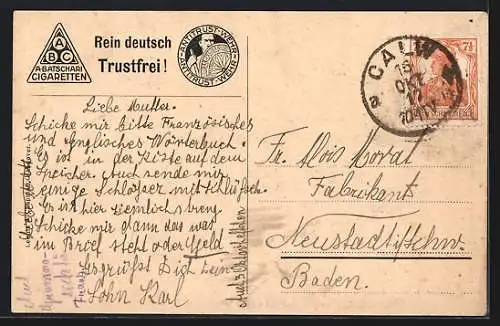 ABC
A·BATSCHARI
CIGARETTEN
Rein deutsch
Trustfrei!
ANTITRUST-WEHR
ANTITRUST-WEHR
CALW
7½
Liebe Mutter.
Schicke mir bitte Französisches
und Englisches Wörterbuch.
Es ist in der Kiste auf dem
Speicher. Auch sende mir
einige Schlösser mit
Es ist hier ziemlich
Schicke mir dann das was
im Brief steht oder Geld
Es grüsst Dich Dein
Sohn Karl
Fr. Alois Morat
Fabrikant
Neustadt i/Schw.
Baden.